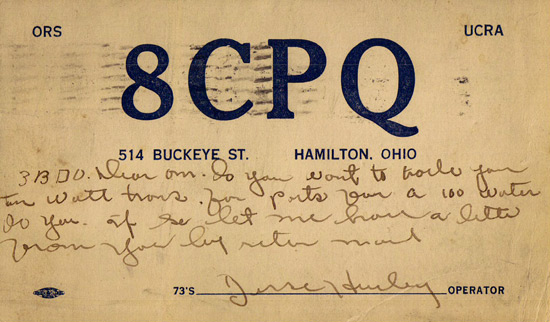 ORS UCRA
8CPQ
514 BUCKEYE ST. HAMILTON, OHIO
3BDO. Dear om. do you want to trade your
ten watt trans. for parts for a 100 water
do you. if so let me have a letter
from you by retern mail
73'S Jesse Hurley OPERATOR